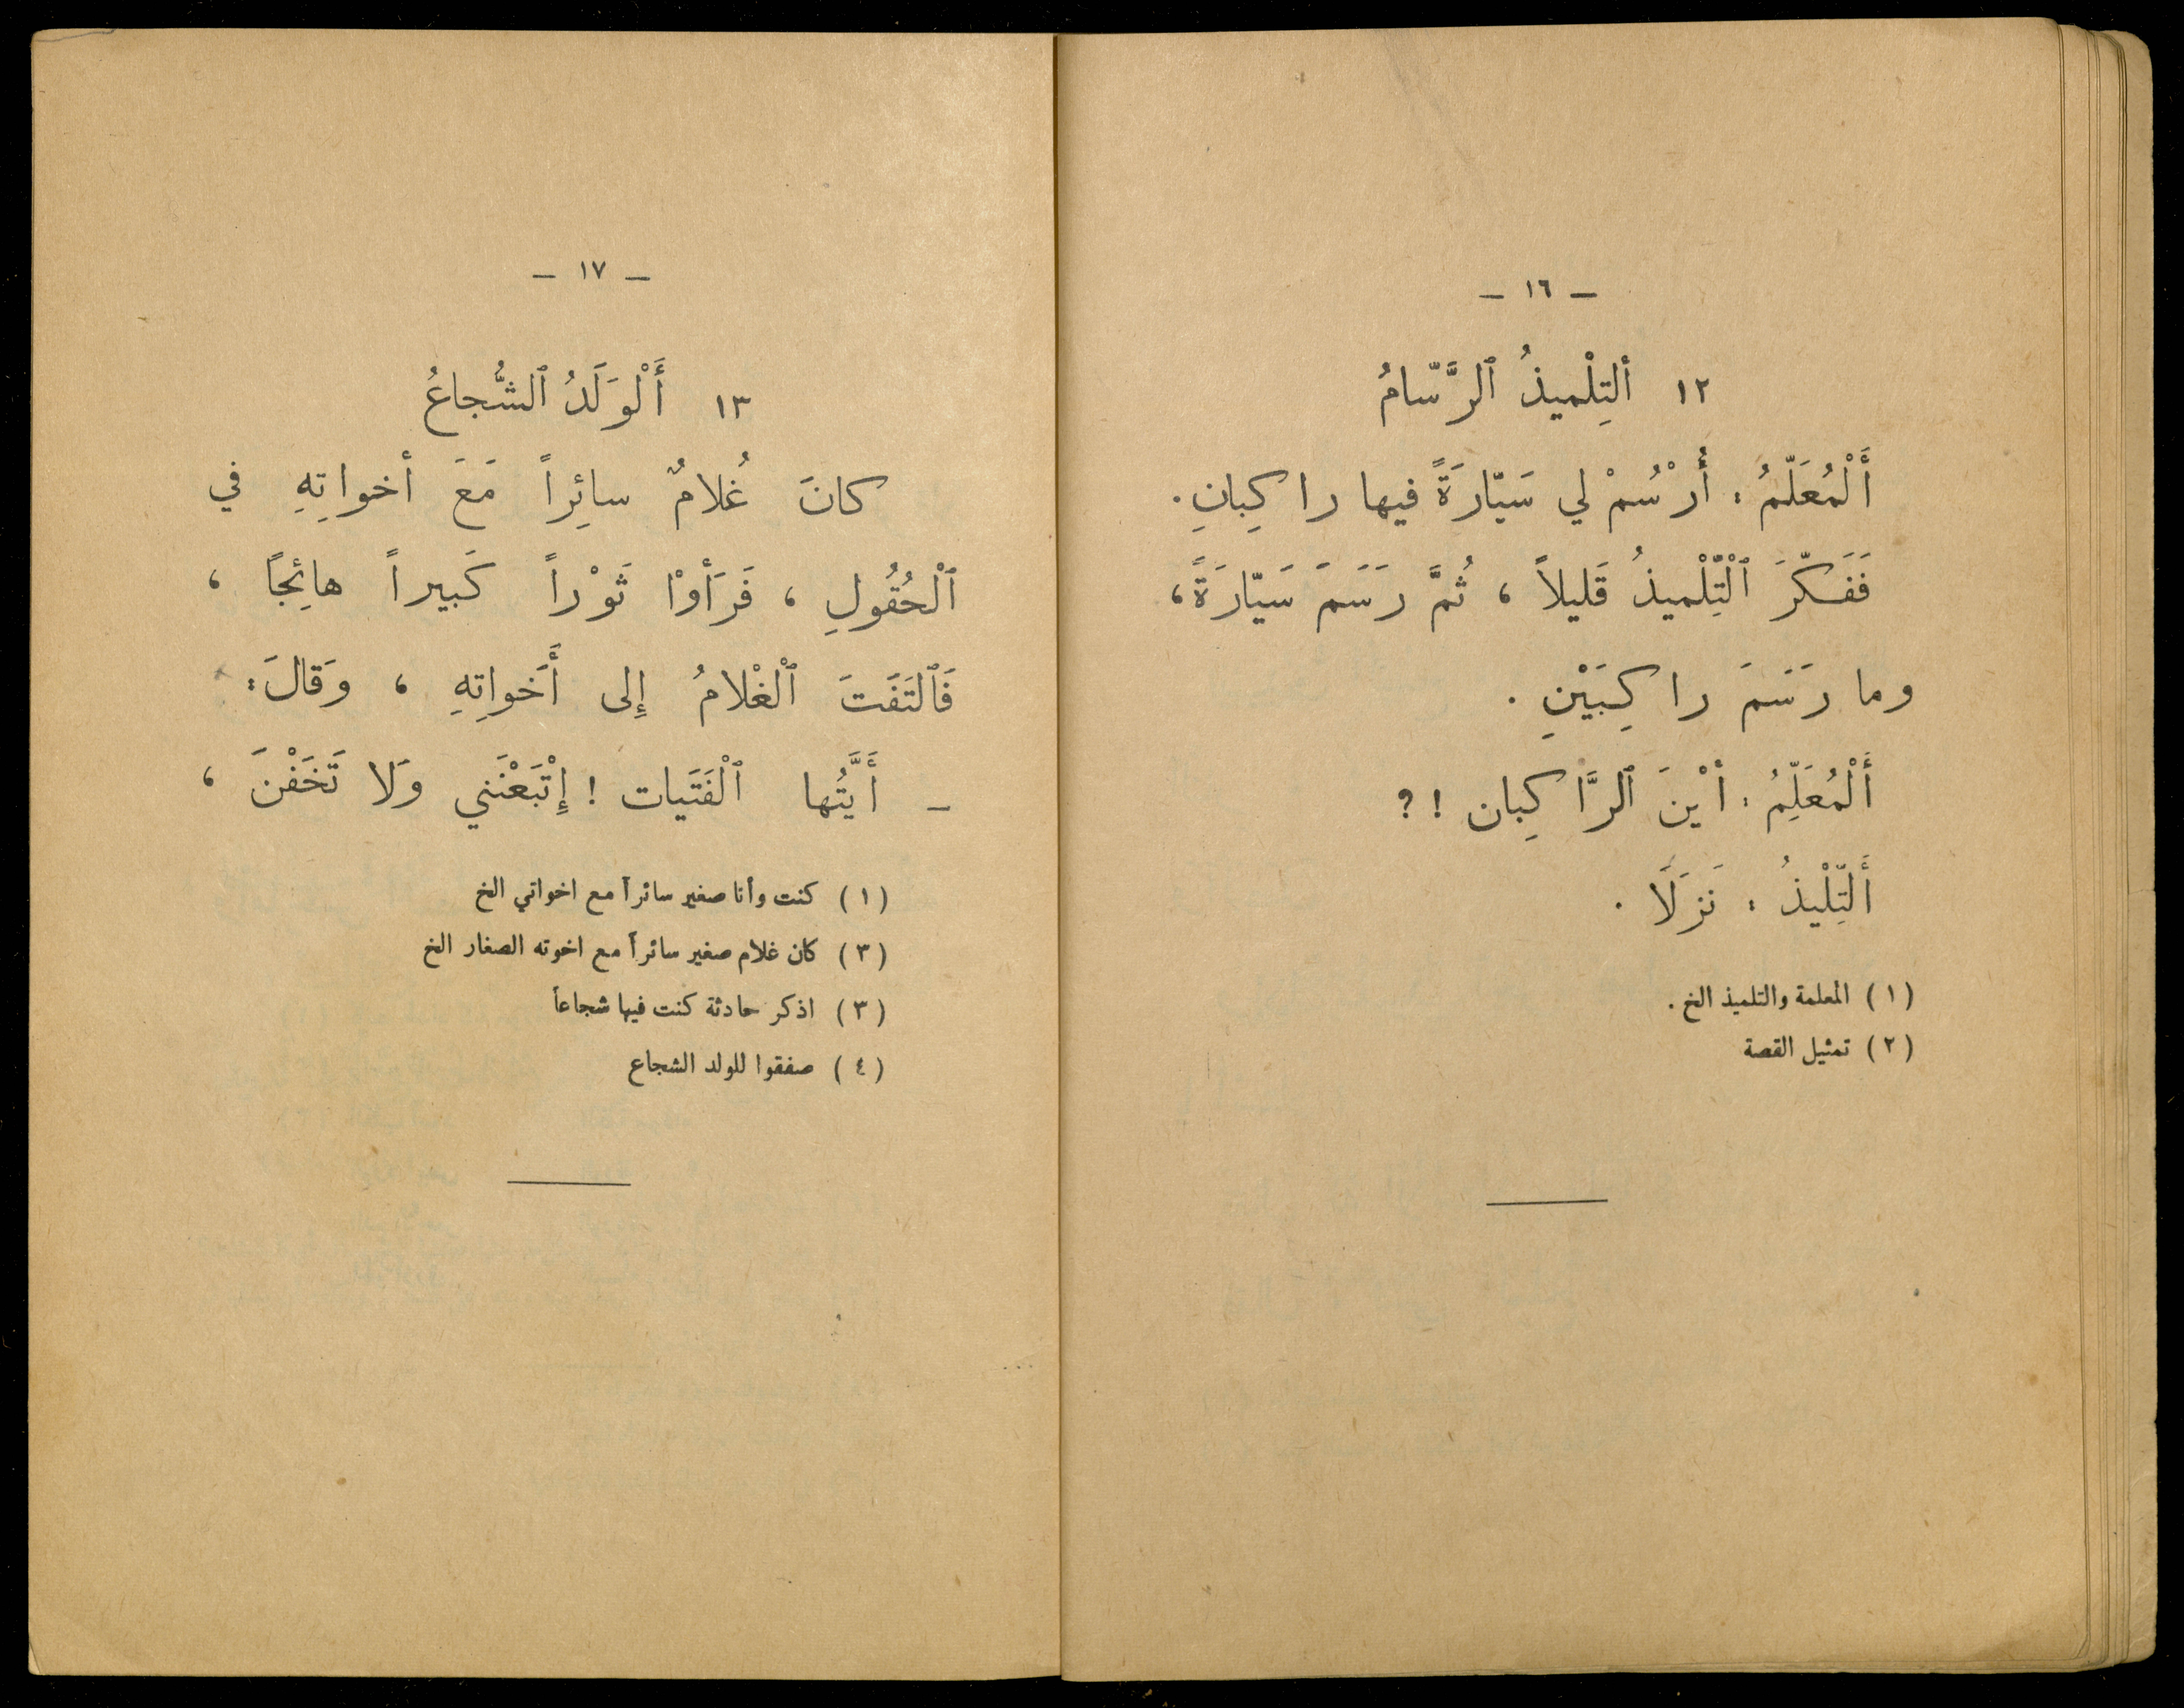 — ١٦ —
١٢ ألتِلْميذُ ٱلرَّسّامُ
أَلْمُعَلّمُ : أُرْسُمْ لي سَيّارَةً فيها راكِبانِ .
فَفَكّرَ ٱلْتِّلْميذُ قَليلاً ، ثُمَّ رَسَمَ سَيّارَةً ،
وما رَسَمَ راكِبَيْنِ .
أَلْمُعَلِّمُ : أيْنَ ٱلرَّاكِبان !؟
أَلتِّلْيذُ : نَزَلَا .
(١) المعلمة والتلميذ الخ .
(٢) تمثيل القصة
— ١٧ —
١٣ أَلْوَلَدُ ٱلشُّجاعُ
كانَ غُلامٌ سائِراً مَعَ أخواتِهِ في
ٱلْحُقُولِ ، فَرَأوْا ثَوْراً كَبيراً هائِجًا ،
فَٱلتَفَتَ ٱلْغْلامُ إِلى أَخَواتِهِ ، وَقالَ :
— أَيَّتُها ٱلْفَتَيات ! إِتْبَعْنَني وَلا تَخَفْنَ ،
(١) كنت وأنا صغير سائراً مع اخواتي الخ
(٣) كان غلام صغير سائراً مع اخوته الصغار الخ
(٣) اذكر حادثة كنت فيها شجاعاً
(٤) صفقوا للولد الشجاع